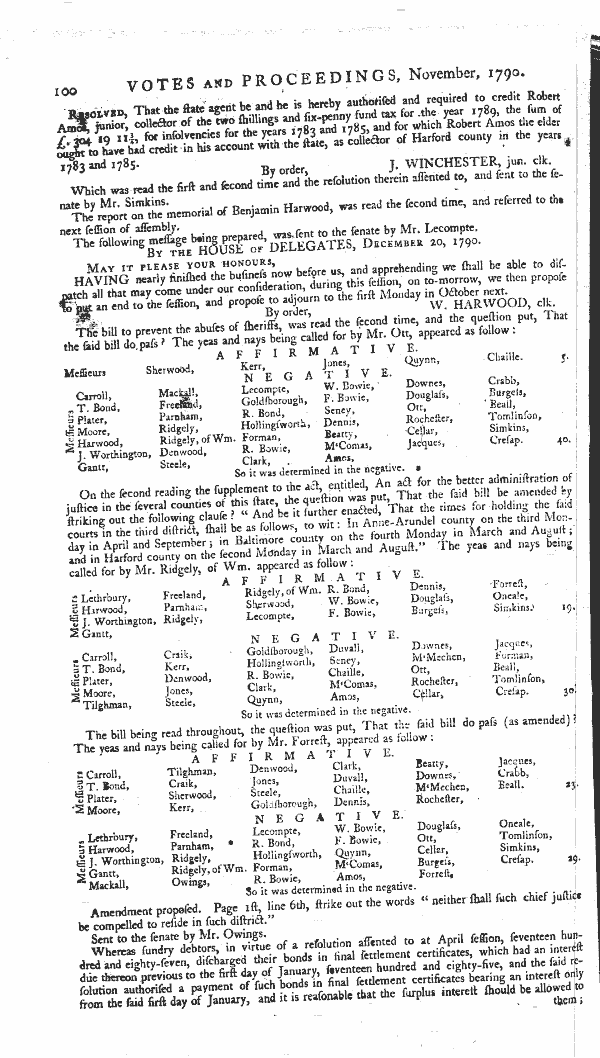 100 VOTES AND PROCEEDINGS, November, 1790.
RESOLVED, That the ſtate agent be and he is hereby authoriſed and required to credit Robert
Amos, junior, collector of the two ſhillings and ſix-penny fund tax for the year 1789, the ſum of
£. 304 19 11½, for inſolvencies for the years 1783 and 1785, and for which Robert Amos the elder
ought to have had credit in his account with the ſtate, as collector of Harford county in the years
1783 and 1785.
By order, J. WINCHESTER, jun. clk.
Which was read the firſt and ſecond time and the reſolution therein aſſented to, and ſent to the ſe-
nate by Mr. Simkins.
The report on the memorial of Benjamin Harwood, was read the ſecond time, and referred to the
next ſeſſion of aſſembly.
The following meſſage being prepared, was ſent to the ſenate by Mr. Lecompte.
BY THE HOUSE OF DELEGATES, DECEMBER 20, 1790.
MAY IT PLEASE YOUR HONOURS,
HAVING nearly finiſhed the buſineſs now before us, and apprehending we ſhall be able to diſ-
patch all that may come under our conſideration, during this ſeſſion, on to-morrow, we then propoſe
to put an end to the ſeſſion, and propoſe to adjourn to the firſt Monday in October next.
By order, W. HARWOOD, clk.
The bill to prevent the abuſes of ſheriffs, was read the ſecond time, and the queſtion put, That
the ſaid bill do paſs? The yeas and nays being called for by Mr. Ott, appeared as follow:
AFFIRMATIVE.
Meſſieurs Sherwood, Kerr, Jones, Quynn, Chaille. 5.
NEGATIVE.
Meſſieurs
Carroll, Mackall, Lecompte, W. Bowie, Downes, Crabb,
T. Bond, Freeland, Goldſborough, F. Bowie, Douglaſs, Burgeſs,
Plater, Parnham, R. Bond, Seney, Ott, Beall,
Moore, Ridgely, Hollingſworth, Dennis, Rocheſter, Tomlinſon,
Harwood, Ridgely, of Wm. Forman, Beatty, Cellar, Simkins,
J. Worthington, Denwood, R. Bowie, M'Comas, Jacques, Creſap. 40.
Gantt, Steele, Clark, Amos,
So it was determined in the negative.
On the ſecond reading the ſupplement to the act, entitled, An act for the better adminiſtration of
juſtice in the ſeveral counties of this ſtate, the queſtion was put, That the ſaid bill be amended by
ſtriking out the following clauſe? "And be it further enacted, That the times for holding the ſaid
courts in the third diſtrict, ſhall be as follows, to wit: In Anne-Arundel county on the third Mon-
day in April and September; in Baltimore county on the fourth Monday in March and Auguſt;
and in Harford county on the ſecond Monday in March and Auguſt." The yeas and nays being
called for by Mr. Ridgely, of Wm. appeared as follow:
AFFIRMATIVE.
Meſſieurs
Lethrbury, Freeland, Ridgely, of Wm. R. Bond, Dennis, Forreſt,
Harwood, Parnham, Sherwood, W. Bowie, Douglaſs, Oneale,
J. Worthington, Ridgely, Lecompte, F. Bowie, Burgeſs, Simkins. 19.
Gantt,
NEGATIVE.
Meſſieurs
Carroll, Craik, Goldſborough, Duvall, Downes, Jacques,
T. Bond, Kerr, Hollingſworth, Seney, M'Mechen, Forman,
Plater, Denwood, R. Bowie, Chaille, Ott, Beall,
Moore, Jones, Clark, M'Comas, Rocheſter, Tomlinſon,
Tilghman, Steele, Quynn, Amos, Cellar, Creſap. 30
So it was determined in the negative.
The bill being read throughout, the queſtion was put, That the ſaid bill do paſs (as amended)?
The yeas and nays being called for by Mr. Forreſt, appeared as follow:
AFFIRMATIVE.
Meſſieurs
Carroll, Tilghman, Denwood, Clark, Beatty, Jacques,
T. Bond, Craik, Jones, Duvall, Downes, Crabb,
Plater, Sherwood, Steele, Chaille, M'Mechen, Beall. 23.
Moore, Kerr, Goldſborough, Dennis, Rocheſter,
NEGATIVE.
Meſſieurs
Lethrbury, Freeland, Lecompte, W. Bowie, Douglaſs, Oneale,
Harwood, Parnham, R. Bond, F. Bowie, Ott, Tomlinſon,
J. Worthington, Ridgely, Hollingſworth, Quynn, Cellar, Simkins,
Gantt, Ridgely, of Wm. Forman, M'Comas, Burgeſs, Creſap. 29.
Mackall, Owings, R. Bowie, Amos, Forreſt,
So it was determined in the negative.
Amendment propoſed. Page 1ſt, line 6th, ſtrike out the words "neither ſhall ſuch chief juſtice
be compelled to reſide in ſuch diſtrict."
Sent to the ſenate by Mr. Owings.
Whereas ſundry debtors, in virtue of a reſolution aſſented to at April ſeſſion, ſeventeen hun-
dred and eighty-ſeven, diſcharged their bonds in final ſettlement certificates, which had an intereſt
due thereon previous to the firſt day of January, ſeventeen hundred and eighty-five, and the ſaid re-
ſolution authoriſed a payment of ſuch bonds in final ſettlement certificates bearing an intereſt only
from the ſaid firſt day of January, and it is reaſonable that the ſurplus intereſt ſhould be allowed to
them;